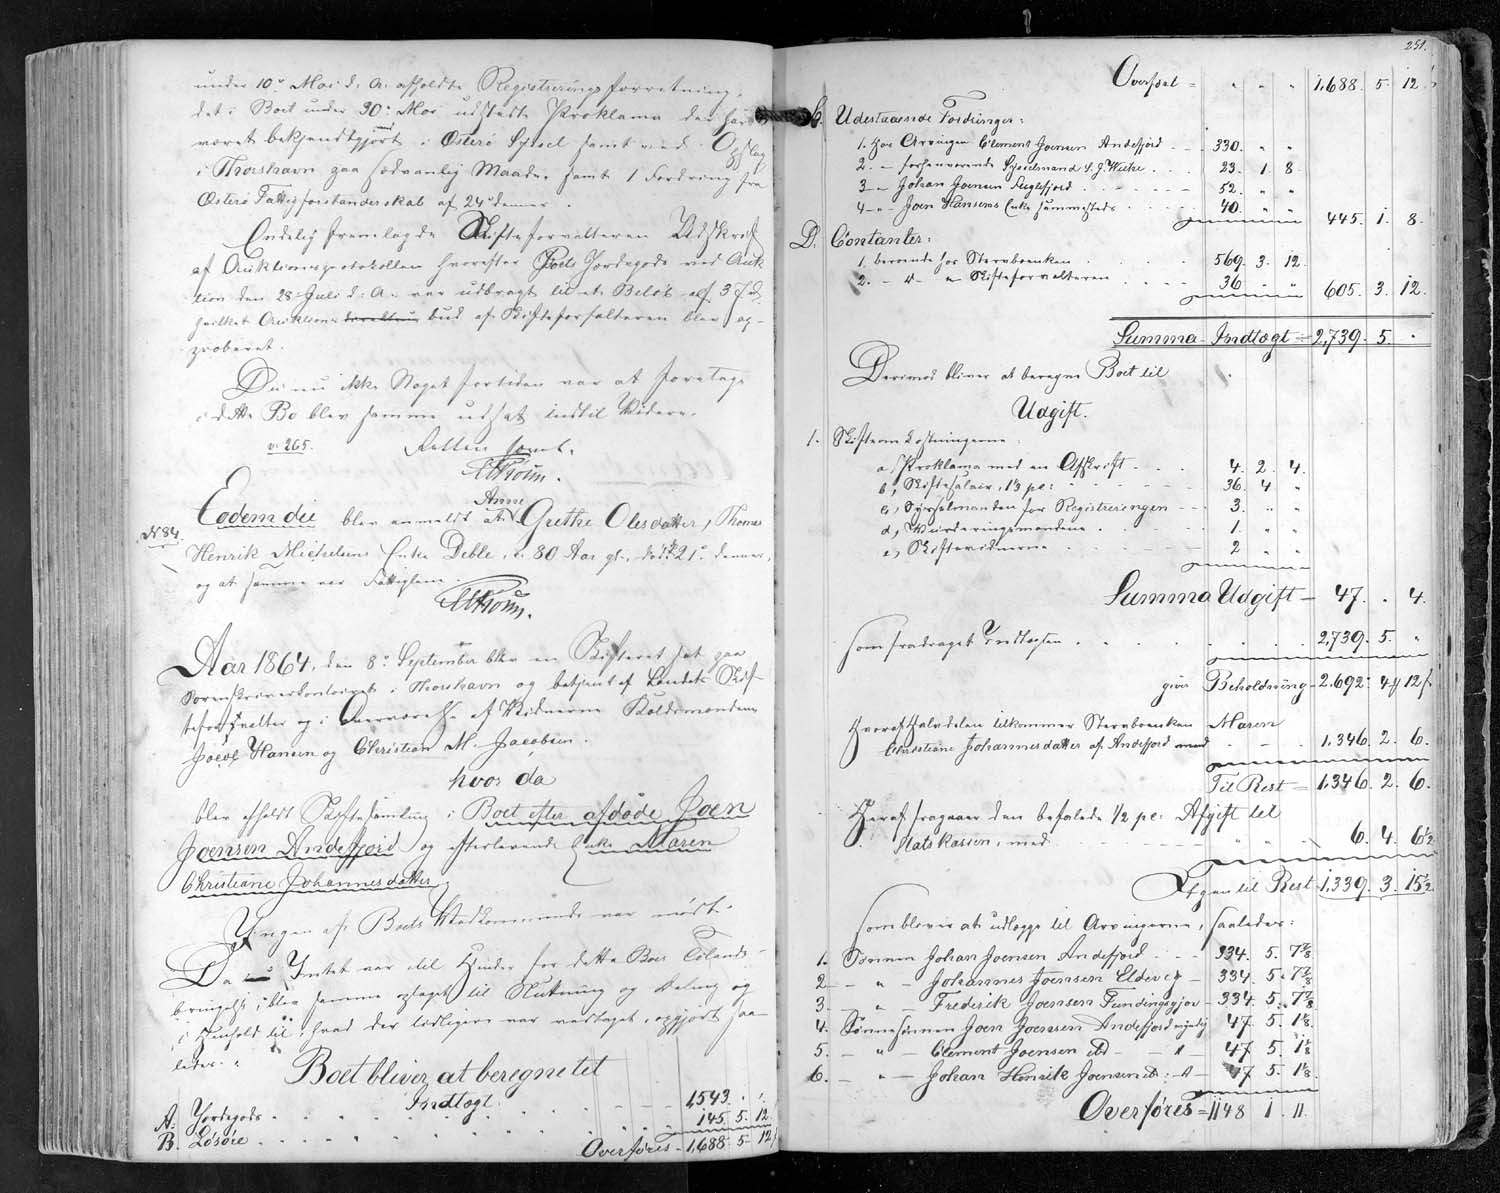 under 10de Mai d. A. afholdte Registreringsforretning,
det i Boet under 30te Mai udstedte Proklama der har
været bekjendtgjort i Østerø Syssel samt ved Opslag
i Thorshavn paa sædvanlig Maade, samt 1 Fordring fra
Østerø Fattigforstanderskab af 24de dennes.
Endelig fremlagde Skifteforvalteren Udskrift
af Auktionsprotokollen hvorefter Boets Jordegods ved Auk
tion den 28de Juli d: A. var udbragt til et Beløb af
hvilket Auktions bud af Skifteforvalteren blev ap-
proberet.
Da nu ikke Noget fortiden var at foretage
i dette Bo blev samme udsat indtil Videre.
v. 265. Retten hævet.
HCMüller
Eodem die blev anmeldt at Anne Grethe Olesdatter, Thomas
No 84.
Henrik Michelsens Enke Deble, v. 80 Aar gl., død d. 21de dennes,
og at samme var Fattiglem.
Aar 1864, den 8de September blev en Skifteret sat paa
Sorenskriverkontoiret i Thorshavn og betjent af Landets Skif-
teforvalter og i Overværelse af Vidnerne Koldsmændene
Jacob Hansen og Christian M. Jacobsen.
hvor da
blev afholdt Skiftesamling i Boet efter afdøde Joen
Joensen Andefjord og efterlevende Enke Maren
Christiane Johannesdatter
Ingen af Boets Vedkommende var mødt.
Da nu Intet var til Hinder for dette Boes Tilende-
bringelse, blev samme optaget til Slutning og Deling og
i Henhold til hvad der tidligere var vedtaget, opgjort saa-
ledes:
Boet bliver at beregne tet
Indtægt.
A. Jordegods 1,543. " "
B. Løsøre 145. 5. 12.
Overføres - 1,688. 5. 12
251.
Overført = " " " 1,688. 5. 12
C. Udestaaende Fordringer:
1. hos Arvingen Clement Joensen Andefjord 330. " "
2. - forhenværende Sysselmand S. J. Weihe 23. 1. 8
3 - Johan Joensen Fuglefjord 52. " "
4 - Joen Hansens Enke sammesteds 40. " "
445. 1. 8.
D. Contanter:
1. beroende hos Sterboenken 569. 3. 12.
2. - d - Skifteforvalteren 36 " "
605. 3. 12.
Summa Indtægt = 2,739. 5. "
Derimod bliver at beregne Boet til
Udgift.
1. Skifteomkostningerne:
a, Proklama med en Afskrift 4. 2. 4.
b, Skiftesalair, 1⅓ pc: 36. 4 "
c, Sysselmanden for Registreringen 3. " "
d, Vurderingsmændene 1. " "
e, Skiftevidnerne 2 " "
Summa Udgift - 47. " 4.
som fradraget Indtægten 2,739. 5. "
giver Beholdning - 2.692. 4 12
hvoraf Halvdelen tilkommer Sterboenken Maren
Christiane Johannesdatter af Andefjord med 1,346. 2. 6.
Til Rest = 1,346. 2. 6.
Heraf fragaaer den befalede 1/2 pc: Afgift til
Statskassen, med 6. 4. 6½
Igjen til Rest - 1,339. 3. 15½
som bliver at udlægge til Arvingerne, saaledes:
1. Sønnen Johan Joensen Andefjord 334. 5. 7⅞
2 - " - Johannes Joensen Eldevig - 334. 5. 7⅞
3 - " - Frederik Joensen Fundingsgjov - 334. 5. 7⅞
4. Sønnesønnen Joen Joensen Andefjord myndig 47. 5. 1⅛
5. - " - Clement Joensen ibd - " - 47 5. 1⅛
6. - " - Johan Henrik Joensen ib: - " - 47 5. 1⅛
Overføres = 1148 1. 11.